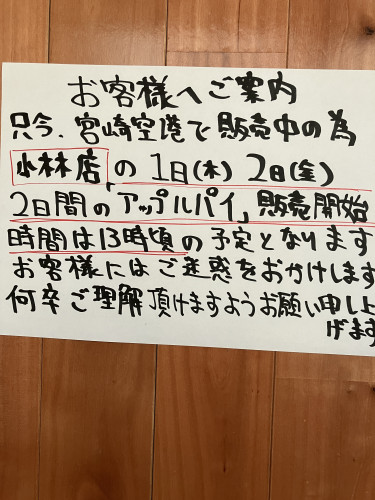 お客様へご案内
只今、宮崎空港で販売中の為
小林店「の 1日(木) 2日(金)
2日間のアップルパイ」販売開始
時間は13時頃の予定となります
お客様にはご迷惑をおかけします
何卒ご理解頂けますようお願い申し上
げます